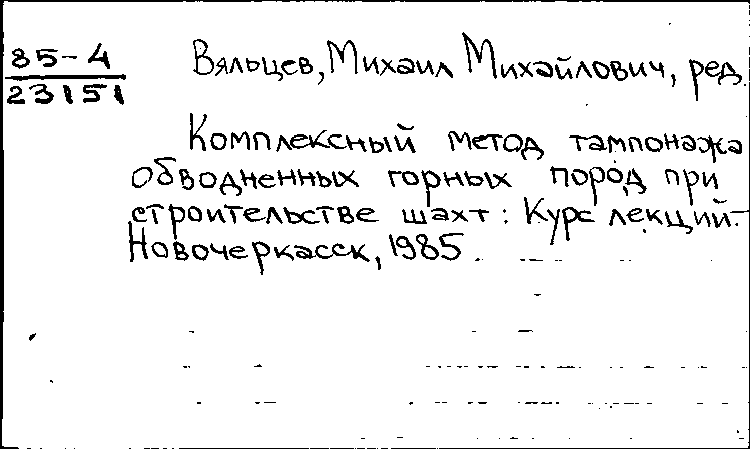 85-4
23151
Вяльцев, Михаил Михайлович, ред.
Комплексный метод тампонажа
обводненных горных пород при
строительстве шахт: Курс лекций.-
Новочеркасск, 1985